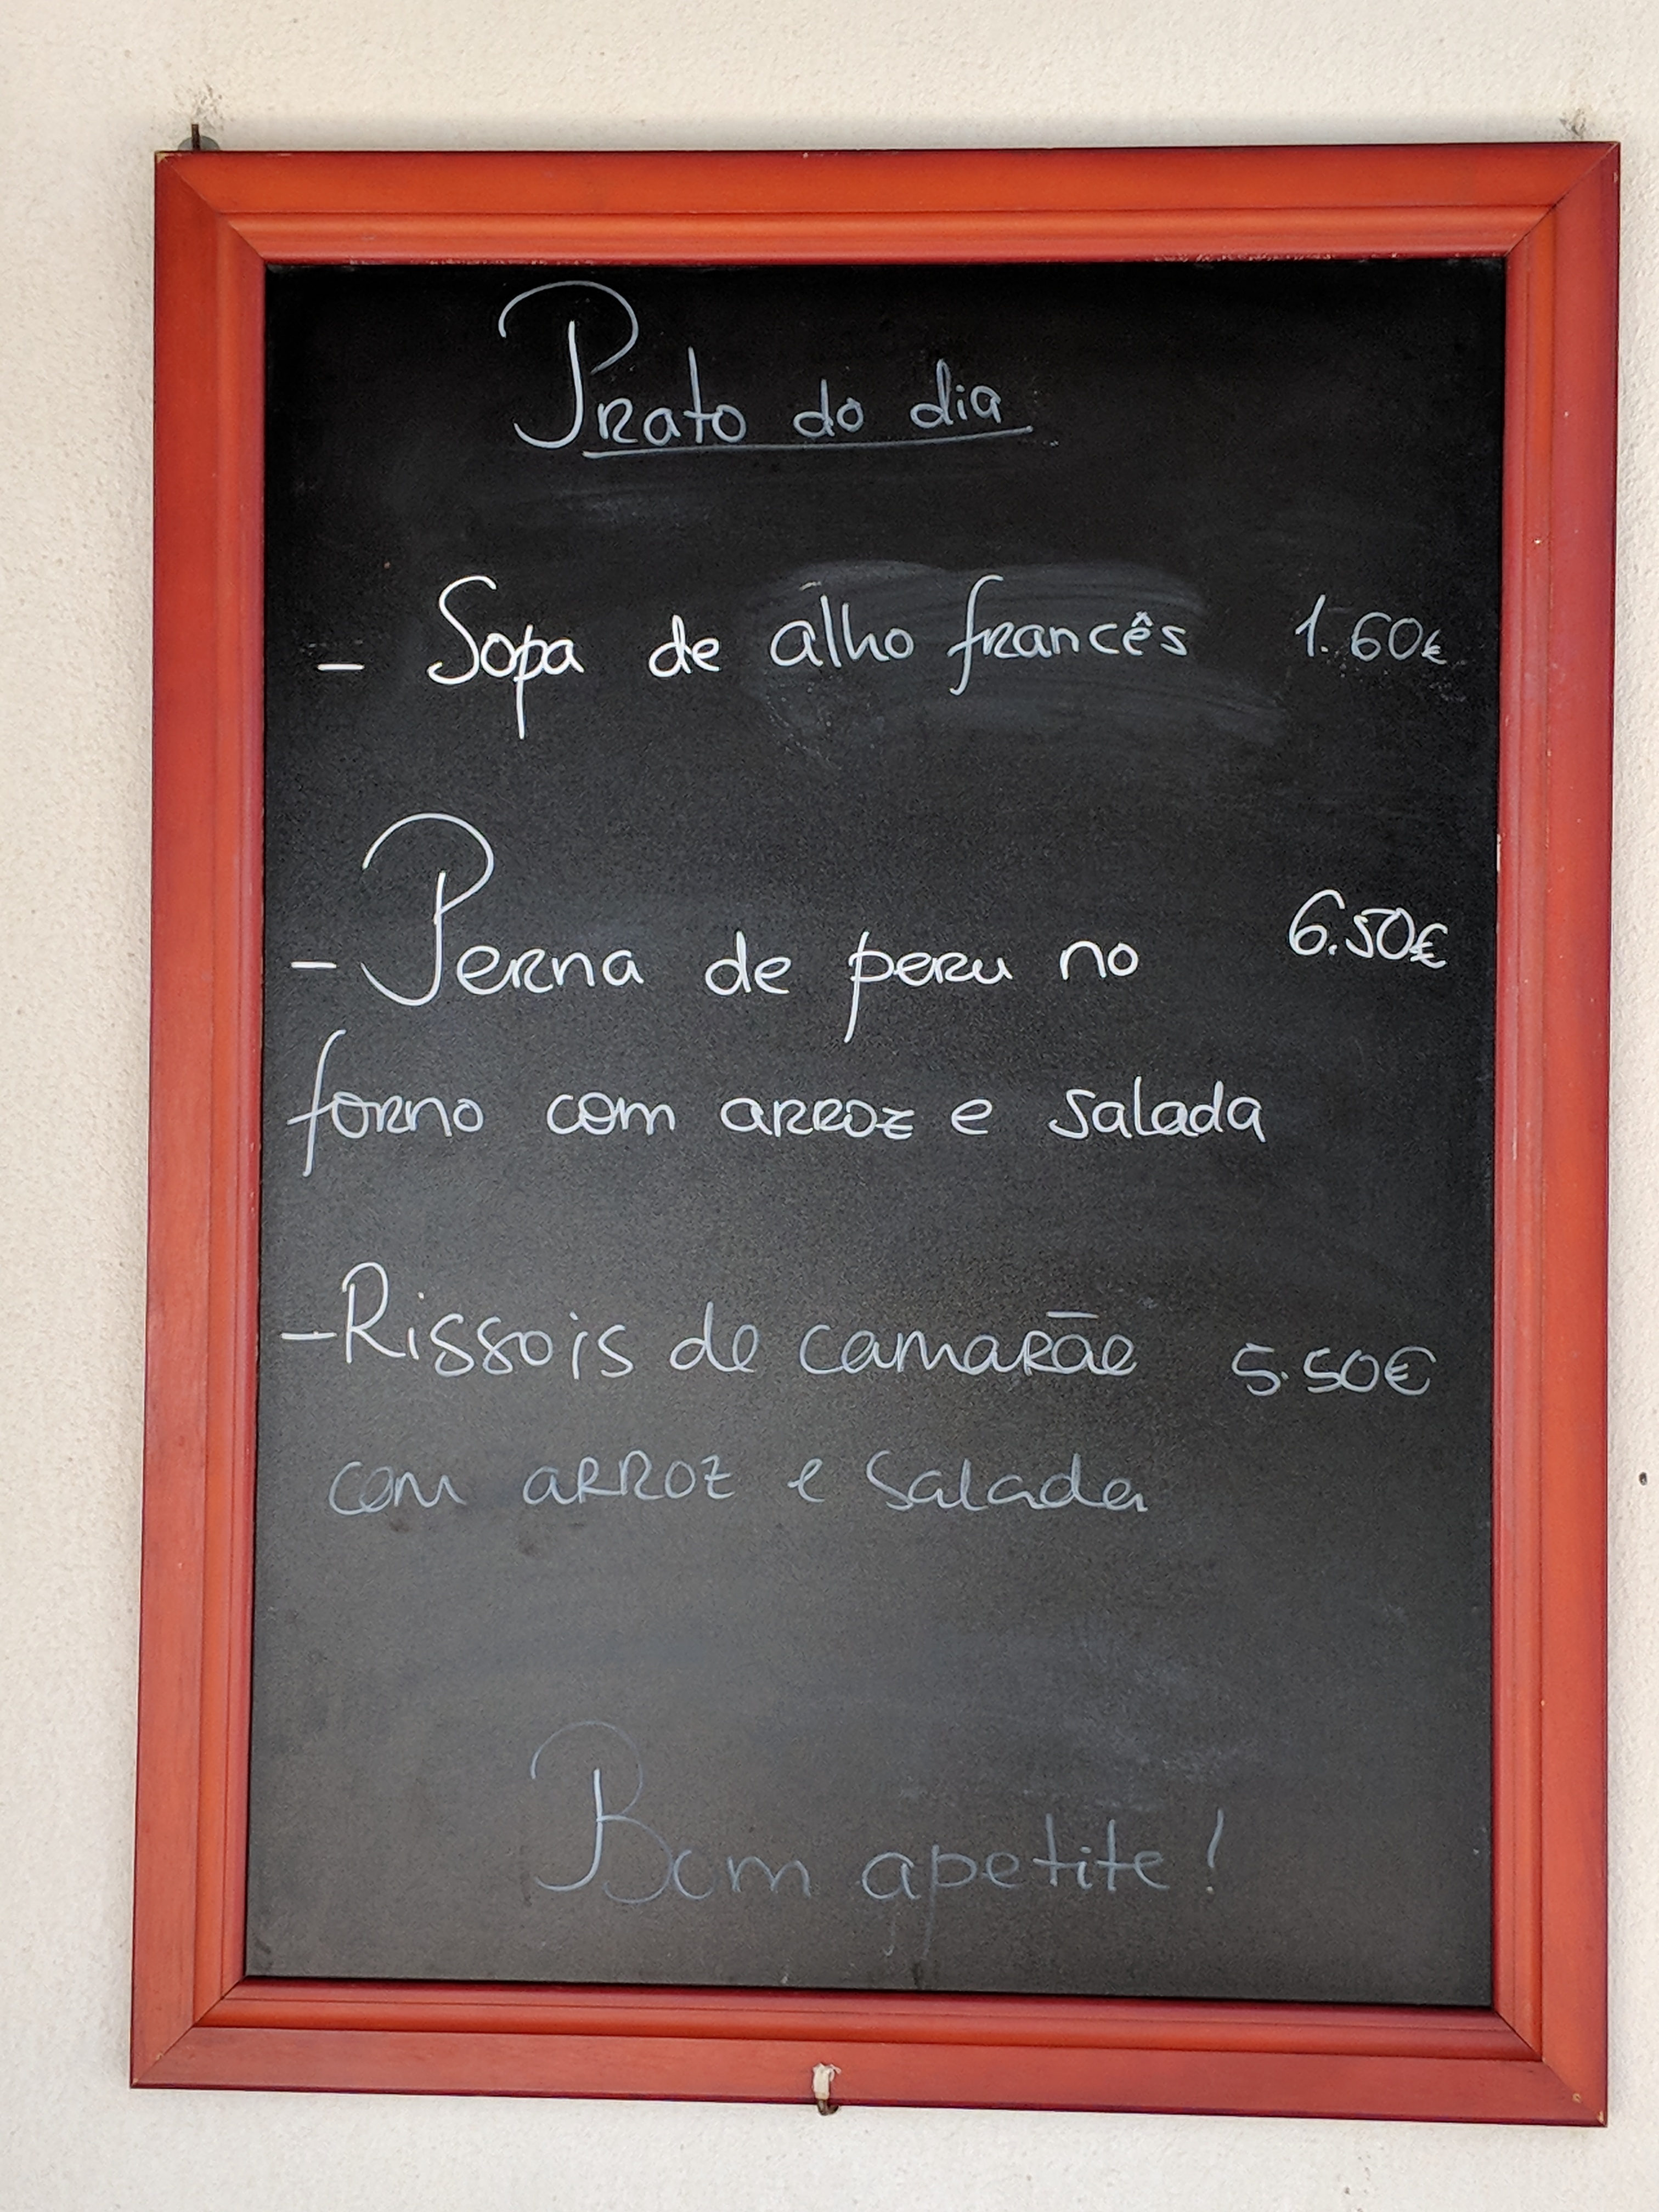 Prato do dia
- Sopa de alho francês 1.60€
- Perna de peru no 6.50€
forno com arroz e salada
- Rissois de camarão 5.50€
com arroz e salada
Bom apetite!